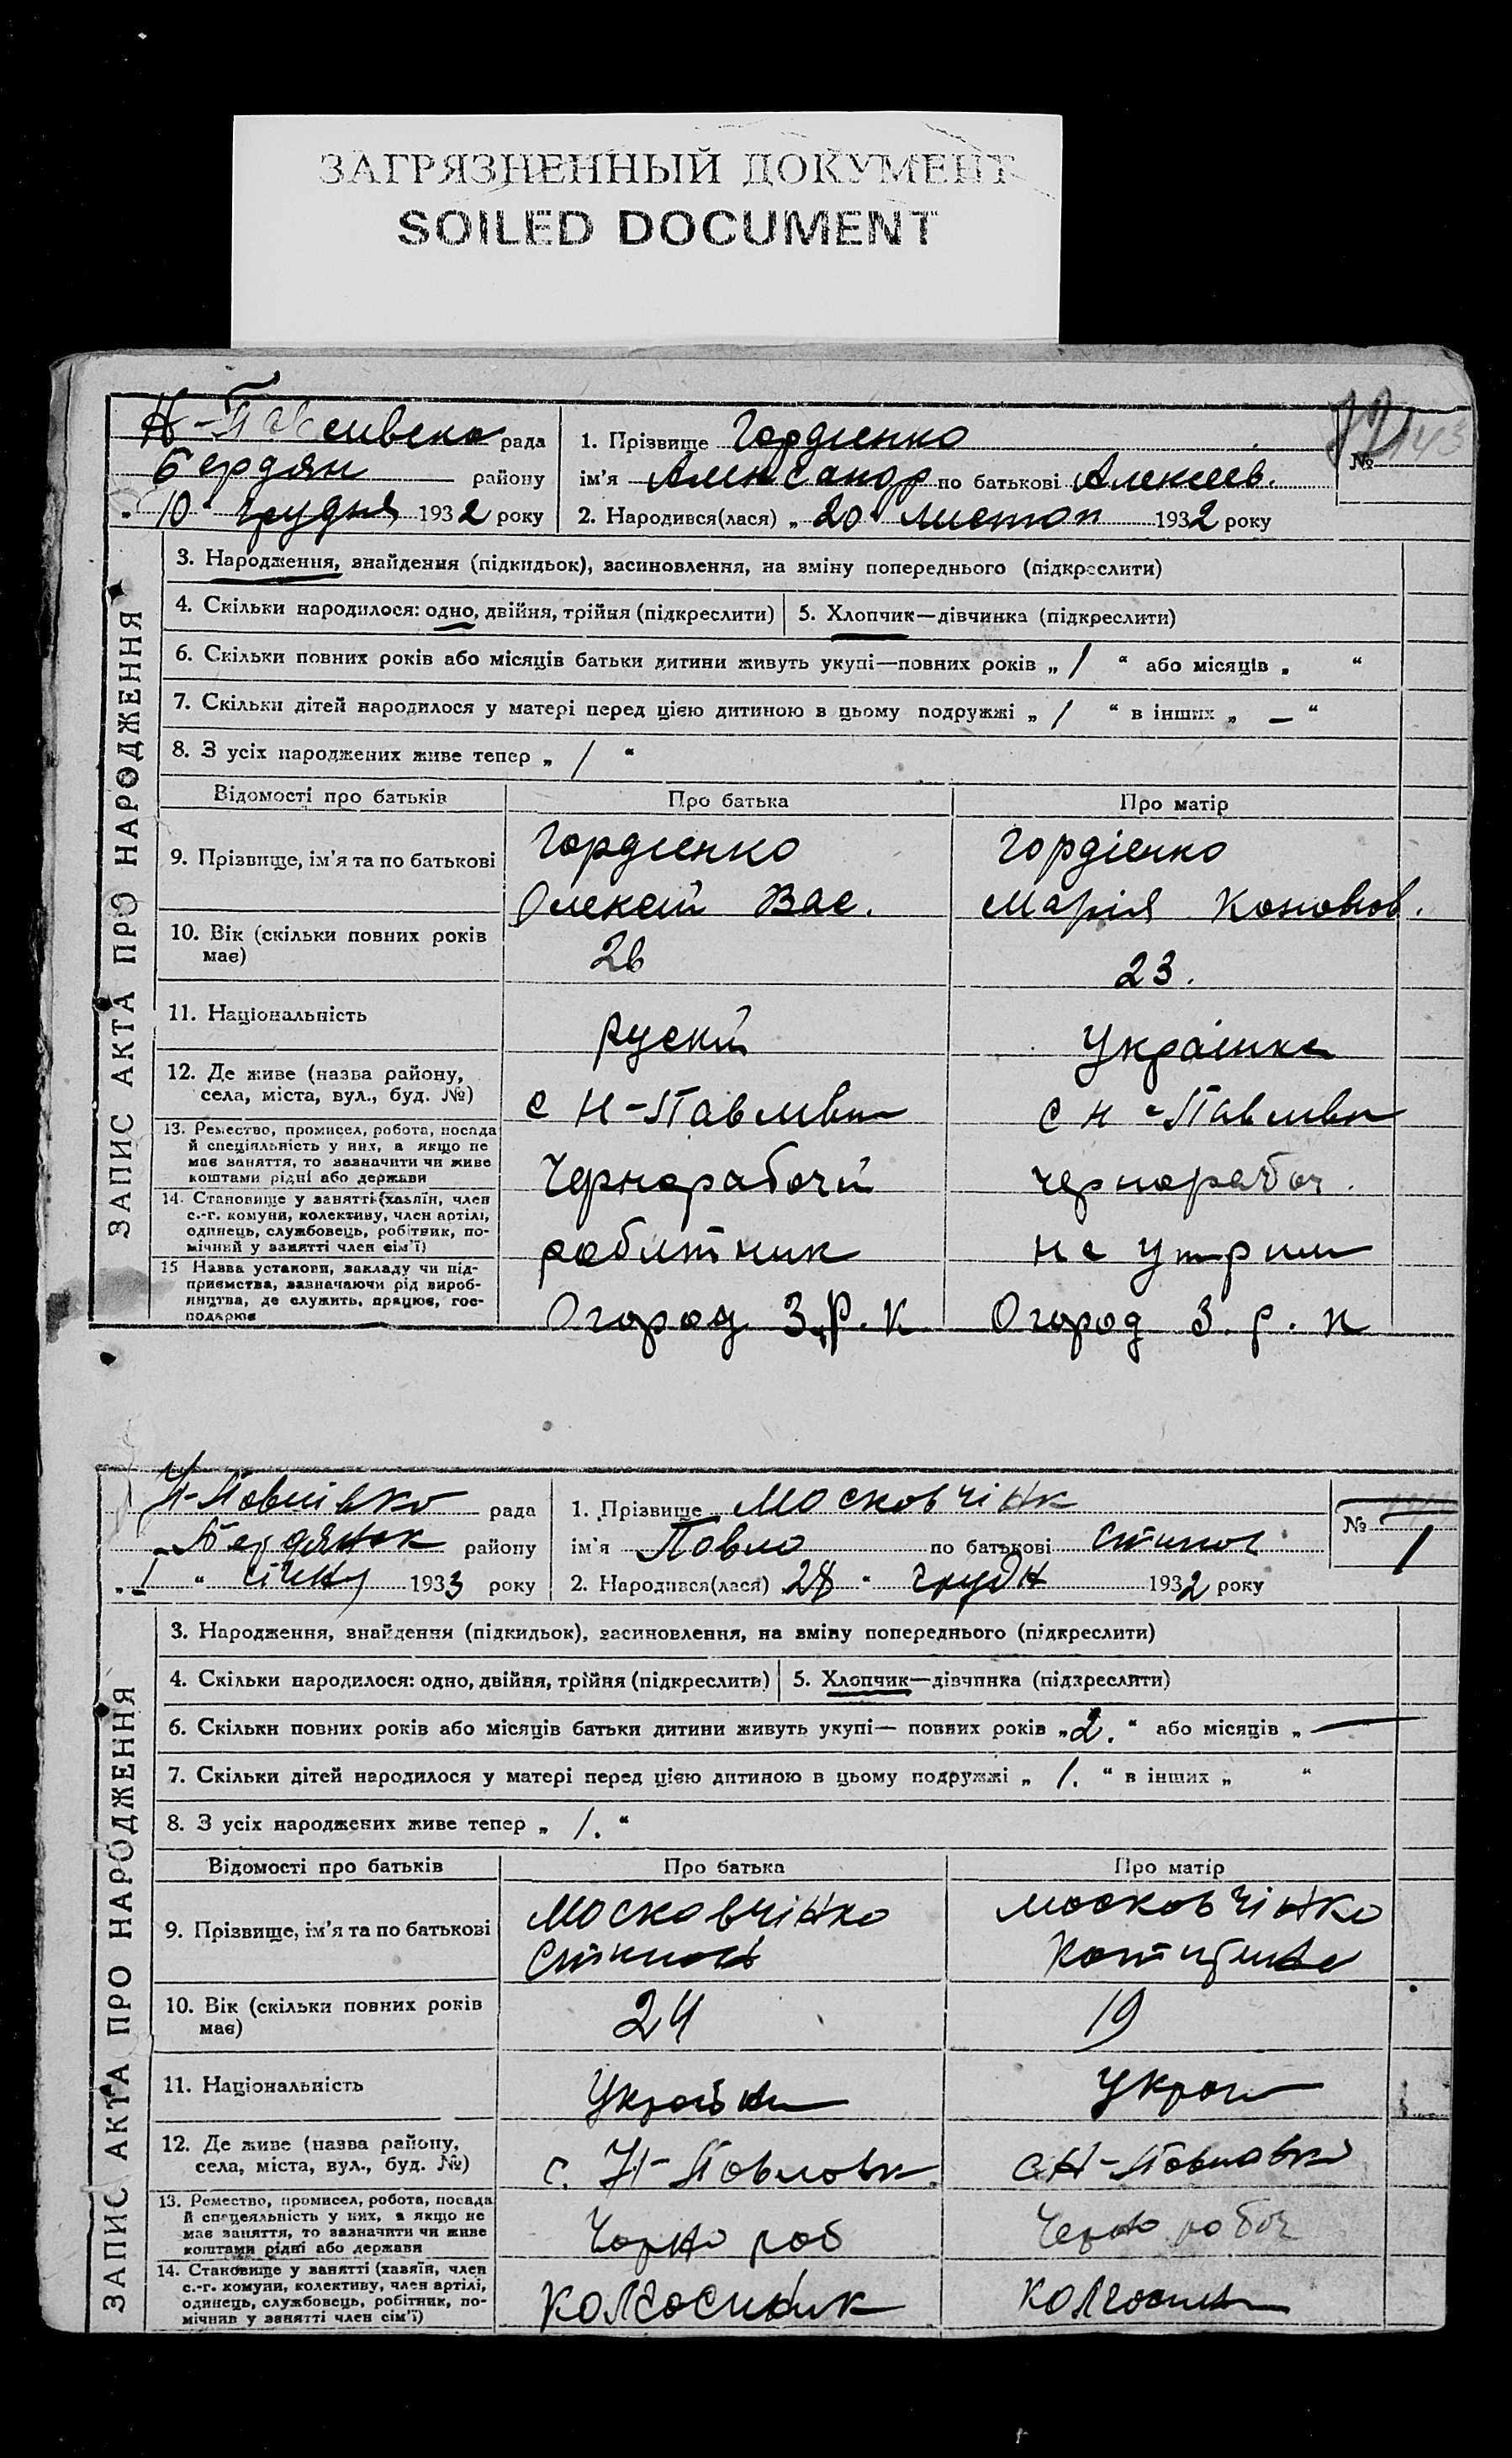 ЗАГРЯЗНЕННЫЙ ДОКУМЕНТ
SOILED DOCUMENT
рада
Бердян району
„10“ грудня 1932 року
1. Прізвище Гордієнко
ім'я Александр по батькові Алексеев.
2. Народився(лася) „20“ листоп 1932 року
№ 143
ЗАПИС АКТА ПРО НАРОДЖЕННЯ
3. Народження, знайдення (підкидьок), засиновлення, на зміну попереднього (підкреслити)
4. Скільки народилося: одно, двійня, трійня (підкреслити) 5. Хлопчик—дівчинка (підкреслити)
6. Скільки повних років або місяців батьки дитини живуть укупі—повних років „ 1 “ або місяців „ “
7. Скільки дітей народилося у матері перед цією дитиною в цьому подружжі „ 1 “ в інших „ — “
8. З усіх народжених живе тепер „ 1 “
Відомості про батьків Про батька Про матір
9. Прізвище, ім'я та по батькові
Гордієнко Гордієнко
Олексій Вас. Марія
10. Вік (скільки повних років має) 26 23.
11. Національність руский Українка
12. Де живе (назва району, села, міста, вул., буд. №) с Н-Павливка с Н-Павливк
13. Ремество, промисел, робота, посада й спеціяльність у них, а якщо не має заняття, то зазначити чи живе коштами рідні або держави
Чернорабочий чернорабоч.
14. Становище у занятті (хазяїн, член с.-г. комуни, колективу, член артілі, одинець, службовець, робітник, помічний у занятті член сім'ї)
робитник на утрим
15 Назва установи, закладу чи підприємства, зазначаючи рід виробництва, де служить, працює, господарює
Огород З.Р.К Огород З.р.к
Н-Павлівка рада
Бердянск району
„1“ січня 1933 року
1. Прізвище Московчінк
ім'я Повло по батькові
2. Народився(лася) 28 “ грудн 1932 року
№ 1
ЗАПИС АКТА ПРО НАРОДЖЕННЯ
3. Народження, знайдення (підкидьок), засиновлення, на зміну попереднього (підкреслити)
4. Скільки народилося: одно, двійня, трійня (підкреслити) 5. Хлопчик—дівчинка (підкреслити)
6. Скільки повних років або місяців батьки дитини живуть укупі— повних років „2.“ або місяців „ —
7. Скільки дітей народилося у матері перед цією дитиною в цьому подружжі „ 1. “ в інших „ “
8. З усіх народжених живе тепер „ 1. “
Відомості про батьків Про батька Про матір
9. Прізвище, ім'я та по батькові
Московчінко Московчінко
10. Вік (скільки повних років має) 24 19
11. Національність Україн Укра
12. Де живе (назва району, села, міста, вул., буд. №) с. Н-Повловк с Н-Повловк
13. Ремество, промисел, робота, посада й спецеяльність у них, а якщо не має заняття, то зазначити чи живе коштами рідні або держави
Чорно роб Черно робоч
14. Становище у занятті (хазяїн, член с.-г. комуни, колективу, член артілі, одинець, службовець, робітник, помічнив у занятті член сім'ї)
колгосник колгосн